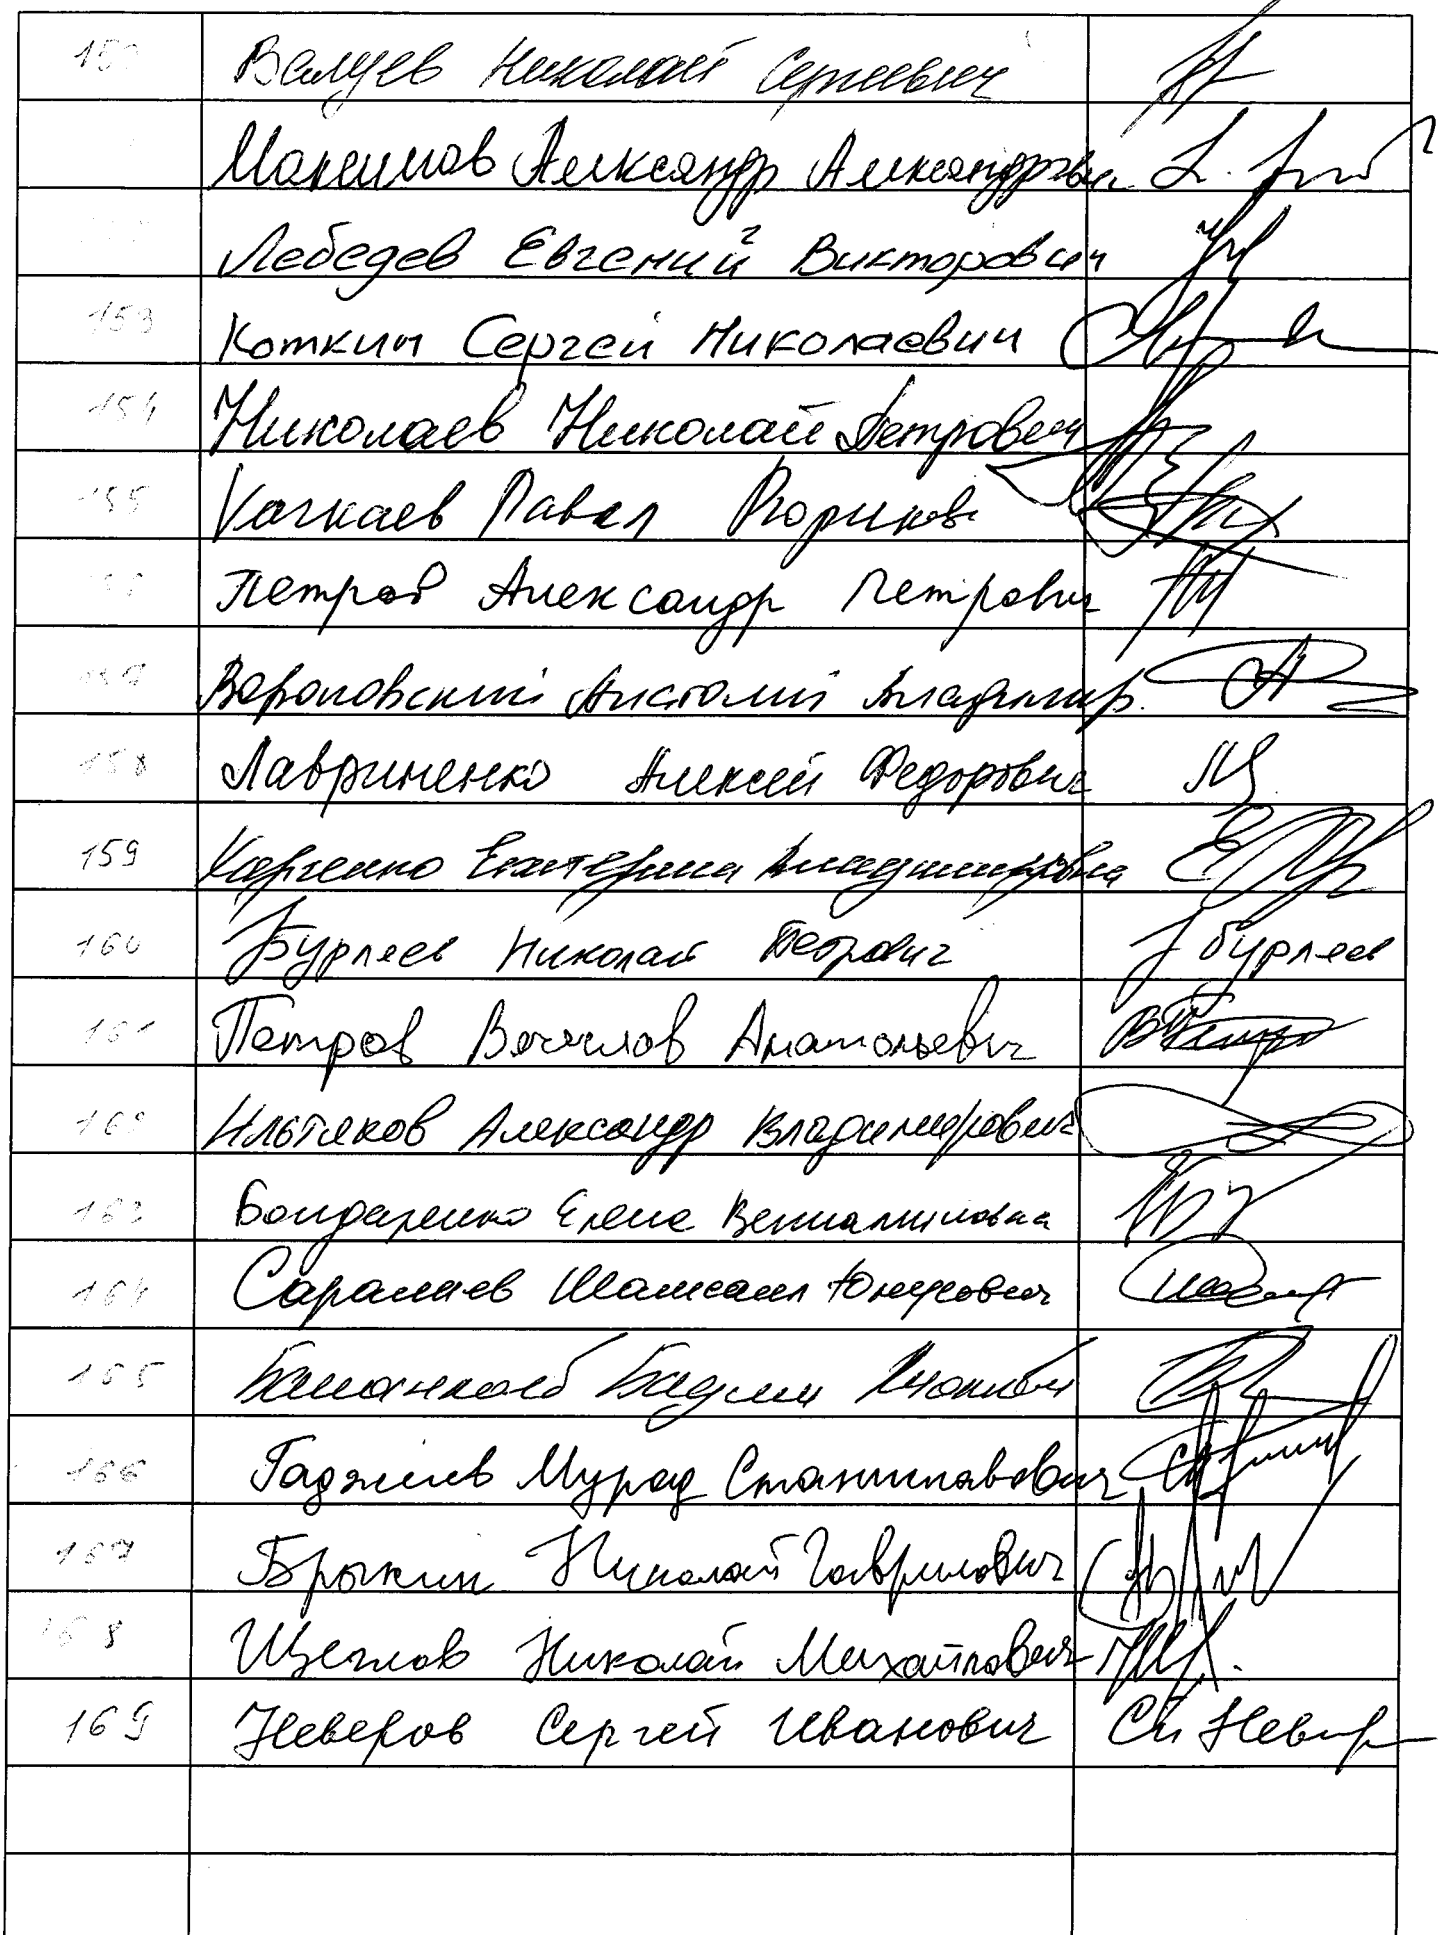 150 Валуев Николай Сергеевич
Максимов Александр Александрович
Лебедев Евгений Викторович
153 Коткин Сергей Николаевич
154 Николаев Николай Петрович
155 Качкаев Павел Рюрикови
Петров Александр Петрович
157 Вороновский Анатолий Владимир.
158 Лавриненко Алексей Федорович
159 Харченко Екатерина Владимировна
160 Бурляев Николай Петрович Бурляев
161 Петров Вячеслав Анатольевич
162 Ильтяков Александр Владимирович
163 Бондаренко Елена Вениаминовна
164 Саралиев Шамсаил Юнусович
165 Башанкаев Бадма
166 Гаджиев Мурад Станиславович
167 Брыкин Николай Гаврилович
168 Щеглов Николай Михайлович
169 Неверов Сергей Иванович СИ Невер